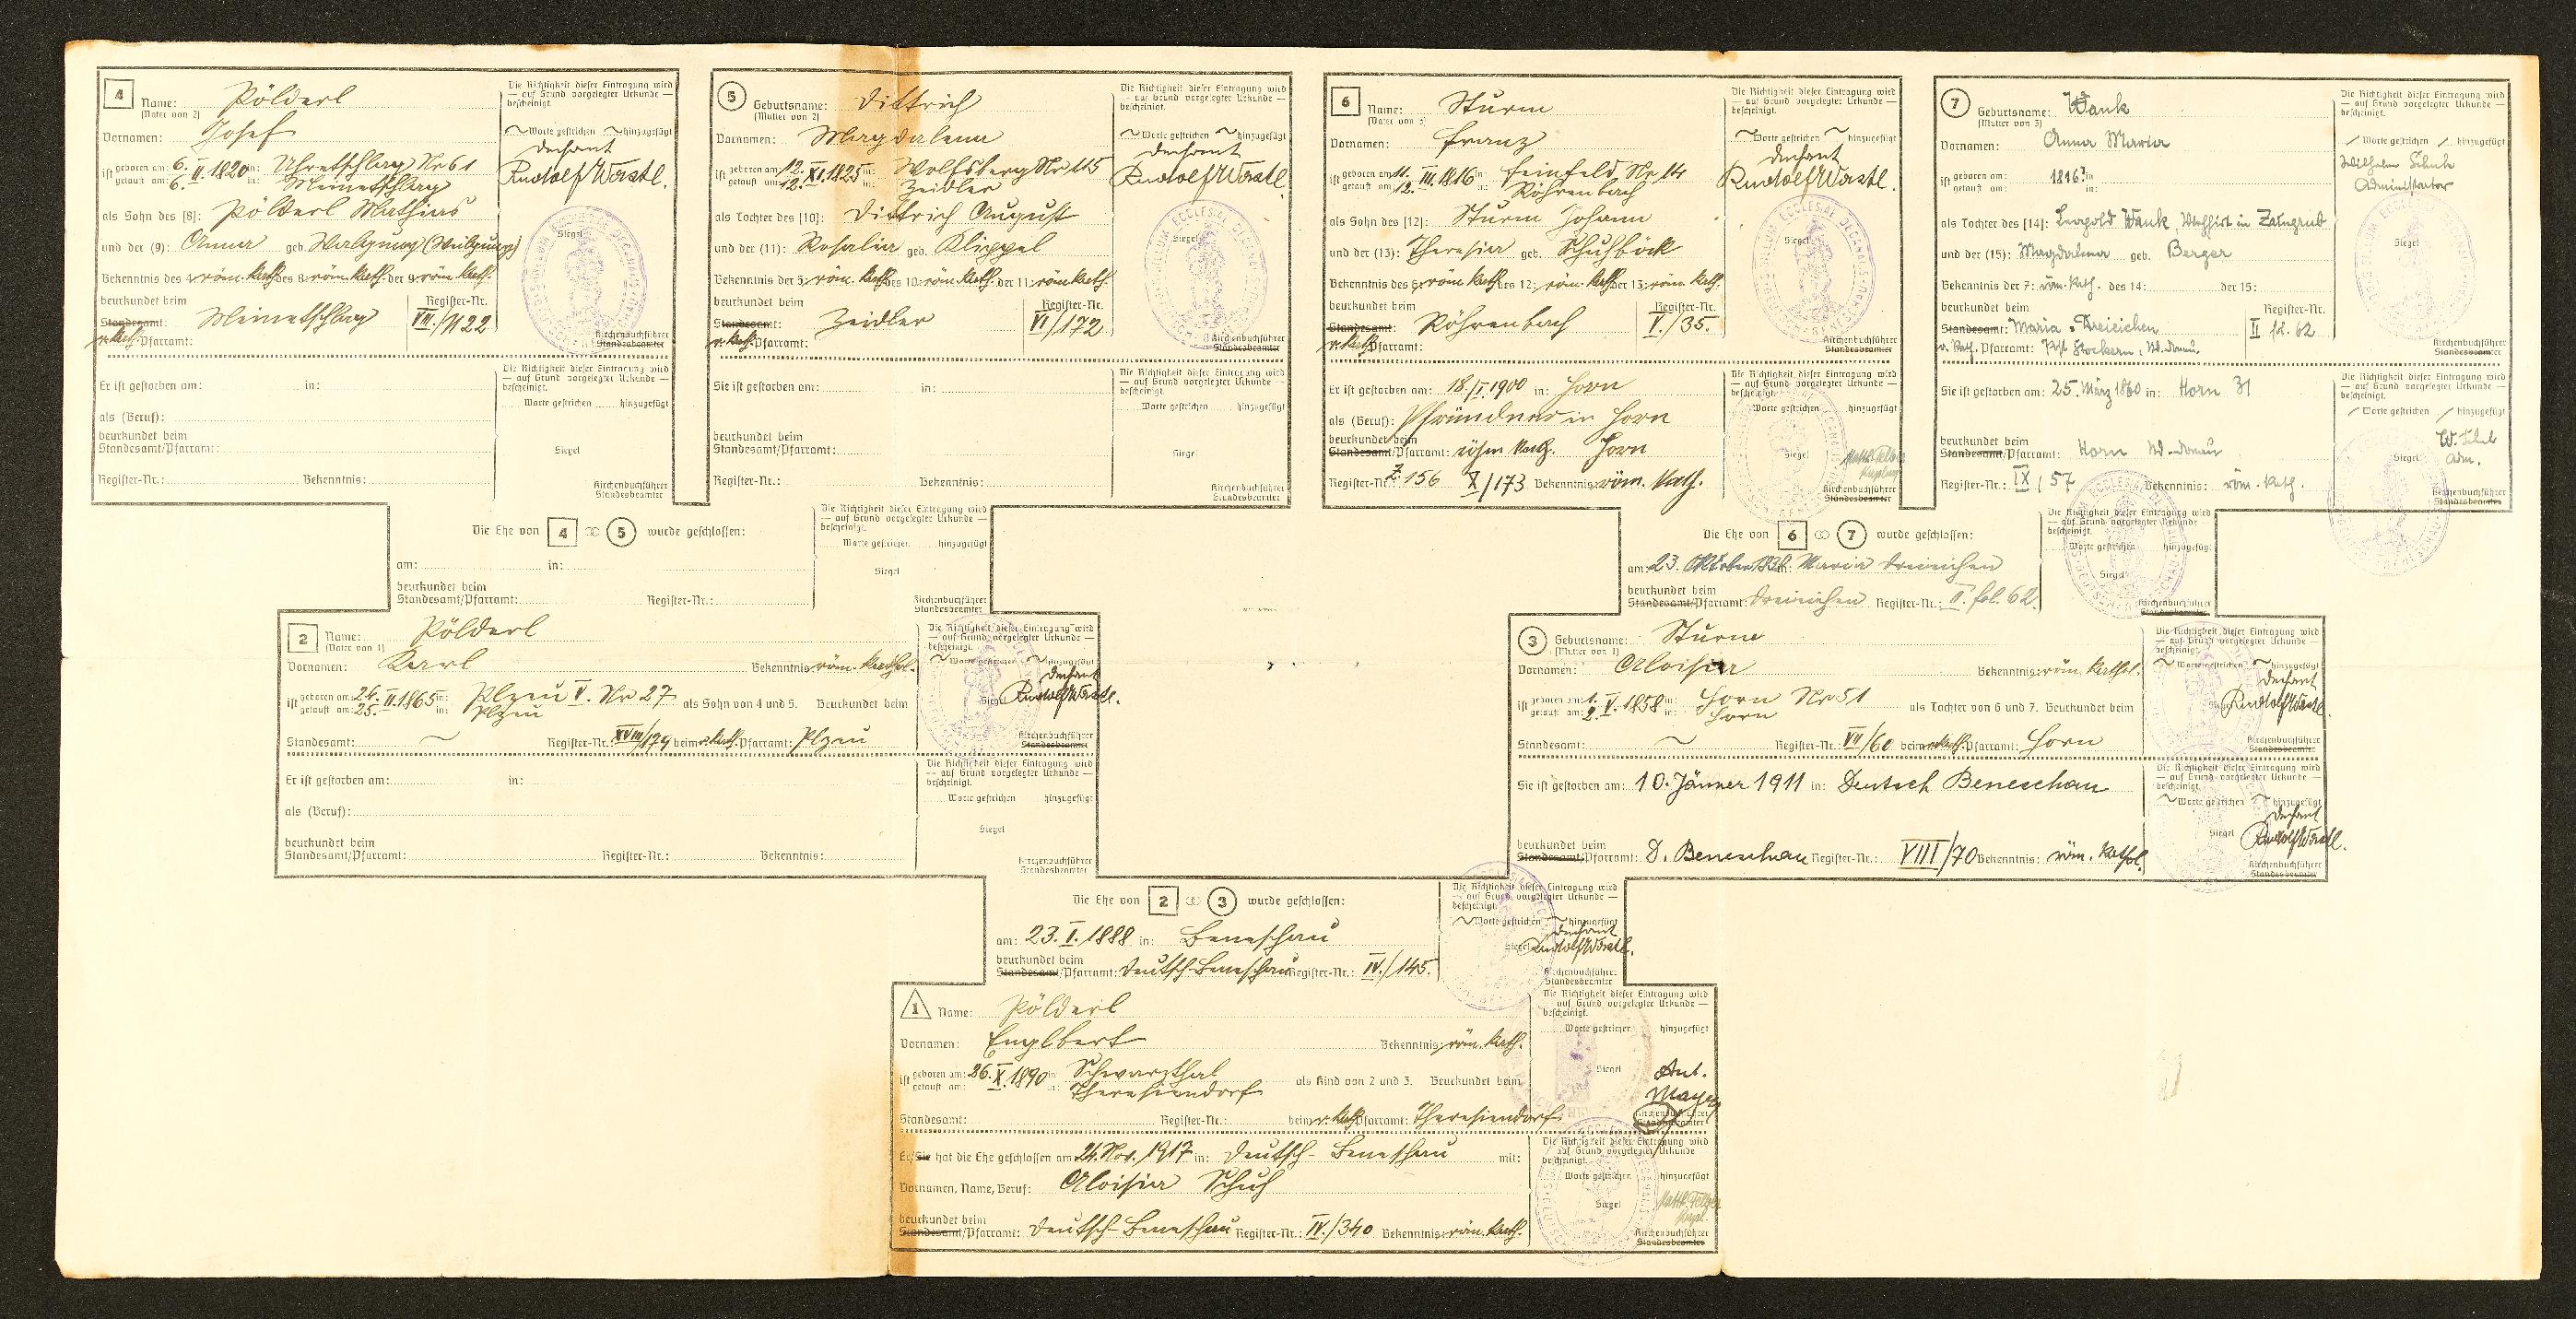 4 Name: Pölderl
(Vater von 2)
Vornamen: Josef
ist geboren am: 6. II. 1820 in: Uhretschlag Nr 61
getauft am: 6. in: Meinetschlag
als Sohn des [8]: Pölderl Mathias
und der (9): Anna geb.
Bekenntnis des 4: röm. kath. des 8: röm. kath. der 9: röm. kath.
beurkundet beim
Standesamt: Meinetschlag
r. kath. Pfarramt:
Register-Nr.
VIII./1122
Die Richtigkeit dieser Eintragung wird
— auf Grund vorgelegter Urkunde —
bescheinigt.
Worte gestrichen hinzugefügt
Dechant
Rudolf Wrastl.
Siegel
Kirchenbuchführer
Standesbeamter
Er ist gestorben am: in:
als (Beruf):
beurkundet beim
Standesamt/Pfarramt:
Register-Nr.: Bekenntnis:
Die Richtigkeit dieser Eintragung wird
— auf Grund vorgelegter Urkunde —
bescheinigt.
Worte gestrichen hinzugefügt
Siegel
Kirchenbuchführer
Standesbeamter
5 Geburtsname: Dittrich
(Mutter von 2)
Vornamen: Magdalena
ist geboren am: 12. XI. 1825 in: Wolfsberg Nr 115
getauft am: 12. in: Zeidler
als Tochter des [10]: Dittrich August
und der (11): Rosalia geb. Klippel
Bekenntnis der 5: röm. kath. des 10: röm. kath. der 11: röm. kath.
beurkundet beim
Standesamt: Zeidler
r. kath. Pfarramt:
Register-Nr.
VI/172
Die Richtigkeit dieser Eintragung wird
— auf Grund vorgelegter Urkunde —
bescheinigt.
Worte gestrichen hinzugefügt
Dechant
Rudolf Wrastl.
Siegel
Kirchenbuchführer
Standesbeamter
Sie ist gestorben am: in:
beurkundet beim
Standesamt/Pfarramt:
Register-Nr.: Bekenntnis:
Die Richtigkeit dieser Eintragung wird
— auf Grund vorgelegter Urkunde —
bescheinigt.
Worte gestrichen hinzugefügt
Siegel
Kirchenbuchführer
Standesbeamter
6 Name: Sturm
(Vater von 3)
Vornamen: Franz
ist geboren am: 11. III. 1816 in: Feinfeld Nr 14
getauft am: 12. in: Röhrenbach
als Sohn des [12]: Sturm Johann
und der (13): Theresia geb. Schuhböck
Bekenntnis des 6: röm. kath. des 12: röm. kath. der 13: röm. kath.
beurkundet beim
Standesamt: Röhrenbach
r. kath. Pfarramt:
Register-Nr.
V./35.
Die Richtigkeit dieser Eintragung wird
— auf Grund vorgelegter Urkunde —
bescheinigt.
Worte gestrichen hinzugefügt
Dechant
Rudolf Wrastl.
Siegel
Kirchenbuchführer
Standesbeamter
Er ist gestorben am: 18./I. 1900 in: Horn
als (Beruf): Pfründner in Horn
beurkundet beim
Standesamt/Pfarramt: röm kath. Horn
Register-Nr.: Z. 156 X/173 Bekenntnis: röm. kath.
Die Richtigkeit dieser Eintragung wird
— auf Grund vorgelegter Urkunde —
bescheinigt.
Worte gestrichen hinzugefügt
Siegel
Kirchenbuchführer
Standesbeamter
7 Geburtsname: Wank
(Mutter von 3)
Vornamen: Anna Maria
ist geboren am: 1816? in:
getauft am: in:
als Tochter des [14]: Leopold Wank, in Zaingrub
und der (15): Magdalena geb. Berger
Bekenntnis der 7: röm. kath. des 14: der 15:
beurkundet beim
Standesamt: Maria-Dreieichen
r. kath. Pfarramt: Post Stockern, Nd. Donau.
Register-Nr.
II fol. 62
Die Richtigkeit dieser Eintragung wird
— auf Grund vorgelegter Urkunde —
bescheinigt.
Worte gestrichen hinzugefügt
Wilhelm
Administrator
Siegel
Kirchenbuchführer
Standesbeamter
Sie ist gestorben am: 25. März 1880 in: Horn 31
beurkundet beim
Standesamt/Pfarramt: Horn Nd-Donau
Register-Nr.: IX/57 Bekenntnis: röm. kath.
Die Richtigkeit dieser Eintragung wird
— auf Grund vorgelegter Urkunde —
bescheinigt.
Worte gestrichen hinzugefügt
Adm.
Siegel
Kirchenbuchführer
Standesbeamter
Die Ehe von 4 ∞ 5 wurde geschlossen:
am: in:
beurkundet beim
Standesamt/Pfarramt: Register-Nr.:
Die Richtigkeit dieser Eintragung wird
— auf Grund vorgelegter Urkunde —
bescheinigt.
Worte gestrichen hinzugefügt
Siegel
Kirchenbuchführer
Standesbeamter
Die Ehe von 6 ∞ 7 wurde geschlossen:
am: 23. Oktober in: Maria Dreieichen
beurkundet beim
Standesamt/Pfarramt: Dreieichen Register-Nr.: II. fol. 62
Die Richtigkeit dieser Eintragung wird
— auf Grund vorgelegter Urkunde —
bescheinigt.
Worte gestrichen hinzugefügt
Siegel
Kirchenbuchführer
Standesbeamter
2 Name: Pölderl
(Vater von 1)
Vornamen: Karl Bekenntnis: röm. kathol.
ist geboren am: 24. II. 1865 in: Plzeu V. Nr 27 als Sohn von 4 und 5. Beurkundet beim
getauft am: 25. in: Plzeu
Standesamt: Register-Nr.: XVIII/179 beim r. kath. Pfarramt: Plzeu
Die Richtigkeit dieser Eintragung wird
— auf Grund vorgelegter Urkunde —
bescheinigt.
Worte gestrichen hinzugefügt
Dechant
Siegel Rudolf Wrastl.
Kirchenbuchführer
Standesbeamter
Er ist gestorben am: in:
als (Beruf):
beurkundet beim
Standesamt/Pfarramt: Register-Nr.: Bekenntnis:
Die Richtigkeit dieser Eintragung wird
— auf Grund vorgelegter Urkunde —
bescheinigt.
Worte gestrichen hinzugefügt
Siegel
Kirchenbuchführer
Standesbeamter
3 Geburtsname: Sturm
(Mutter von 1)
Vornamen: Aloisia Bekenntnis: röm. kathol.
ist geboren am: 1. V. 1858 in: Horn Nr 51 als Tochter von 6 und 7. Beurkundet beim
getauft am: 2. in: Horn
Standesamt: Register-Nr.: VII/60 beim r. kath. Pfarramt: Horn
Die Richtigkeit dieser Eintragung wird
— auf Grund vorgelegter Urkunde —
bescheinigt.
Worte gestrichen hinzugefügt
Dechant
Rudolf Wrastl.
Kirchenbuchführer
Standesbeamter
Sie ist gestorben am: 10. Jänner 1911 in: Deutsch Beneschau
beurkundet beim
Standesamt/Pfarramt: D. Beneschau Register-Nr.: VIII/70 Bekenntnis: röm. kathol.
Die Richtigkeit dieser Eintragung wird
— auf Grund vorgelegter Urkunde —
bescheinigt.
Worte gestrichen hinzugefügt
Dechant
Siegel Rudolf Wrastl.
Kirchenbuchführer
Standesbeamter
Die Ehe von 2 ∞ 3 wurde geschlossen:
am: 23. I. 1888 in: Beneschau
beurkundet beim
Standesamt/Pfarramt: Deutsch-Beneschau Register-Nr.: IV./145.
Die Richtigkeit dieser Eintragung wird
— auf Grund vorgelegter Urkunde —
bescheinigt.
Worte gestrichen hinzugefügt
Dechant
Siegel Rudolf Wrastl.
Kirchenbuchführer
Standesbeamter
1 Name: Pölderl
Vornamen: Englbert Bekenntnis: röm. kath.
ist geboren am: 26. X. 1890 in: Schwarzthal als Kind von 2 und 3. Beurkundet beim
getauft am: in: Theresiendorf
Standesamt: Register-Nr.: beim r. kath. Pfarramt: Theresiendorf
Die Richtigkeit dieser Eintragung wird
— auf Grund vorgelegter Urkunde —
bescheinigt.
Worte gestrichen hinzugefügt
Siegel Ant.
Mayer
Kirchenbuchführer
Standesbeamter
Er/Sie hat die Ehe geschlossen am 24. Nov. 1917 in: Deutsch-Beneschau mit:
Vornamen, Name, Beruf: Aloisia Schuh
beurkundet beim
Standesamt/Pfarramt: Deutsch-Beneschau Register-Nr.: IV./340 Bekenntnis: röm. kath.
Die Richtigkeit dieser Eintragung wird
— auf Grund vorgelegter Urkunde —
bescheinigt.
Worte gestrichen hinzugefügt
Siegel
Kirchenbuchführer
Standesbeamter